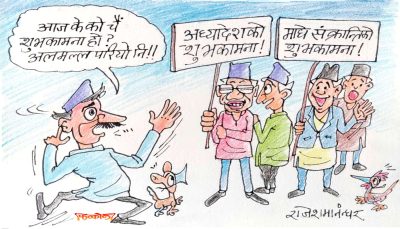 आज के को चैं
शुभकामना हो ?
अलमल्ल पारियो नि!!
अध्यादेशको
शुभकामना!
माघे संक्रान्तिको
शुभकामना!
राजेश मानन्धर